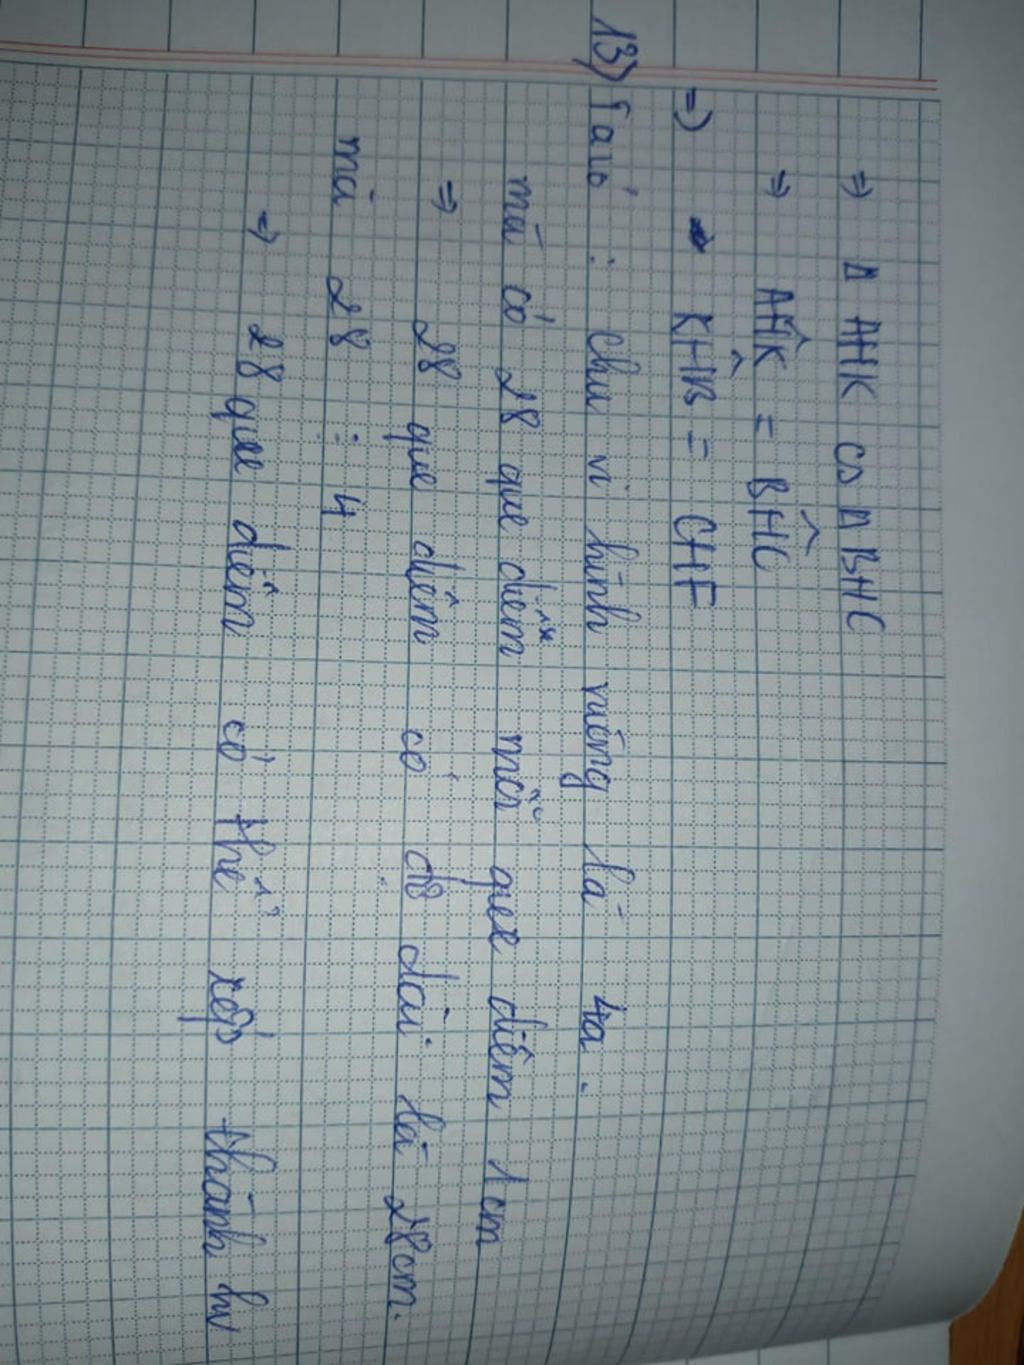 ⇒ Δ AHK ∽ Δ BHC
⇒ AĤK = BĤC
⇒) KĤB = CHF
13) Ta có : chu vi hình vuông là 4a.
mà có 28 que diêm mỗi que diêm 1cm
⇒ 28 que diêm có độ dài là 28cm.
mà 28 ⋮ 4
⇒ 28 que diêm có thể xếp thành hv